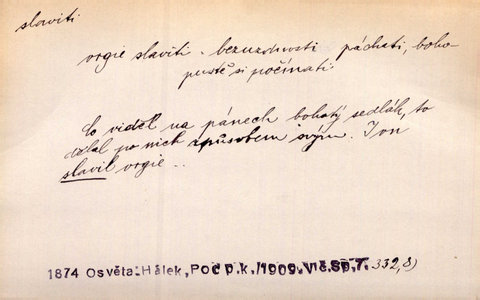 slaviti
orgie slaviti - bezuzdnosti páchati, boho-
pustě si počínati.
Co viděl na pánech bohatý sedlák, to
dělal po nich způsobem svým. I on
slavil orgie ..
1874 Osvěta. Hálek, Poč p.k./1909. Vlč.Sp.7. 332,8)